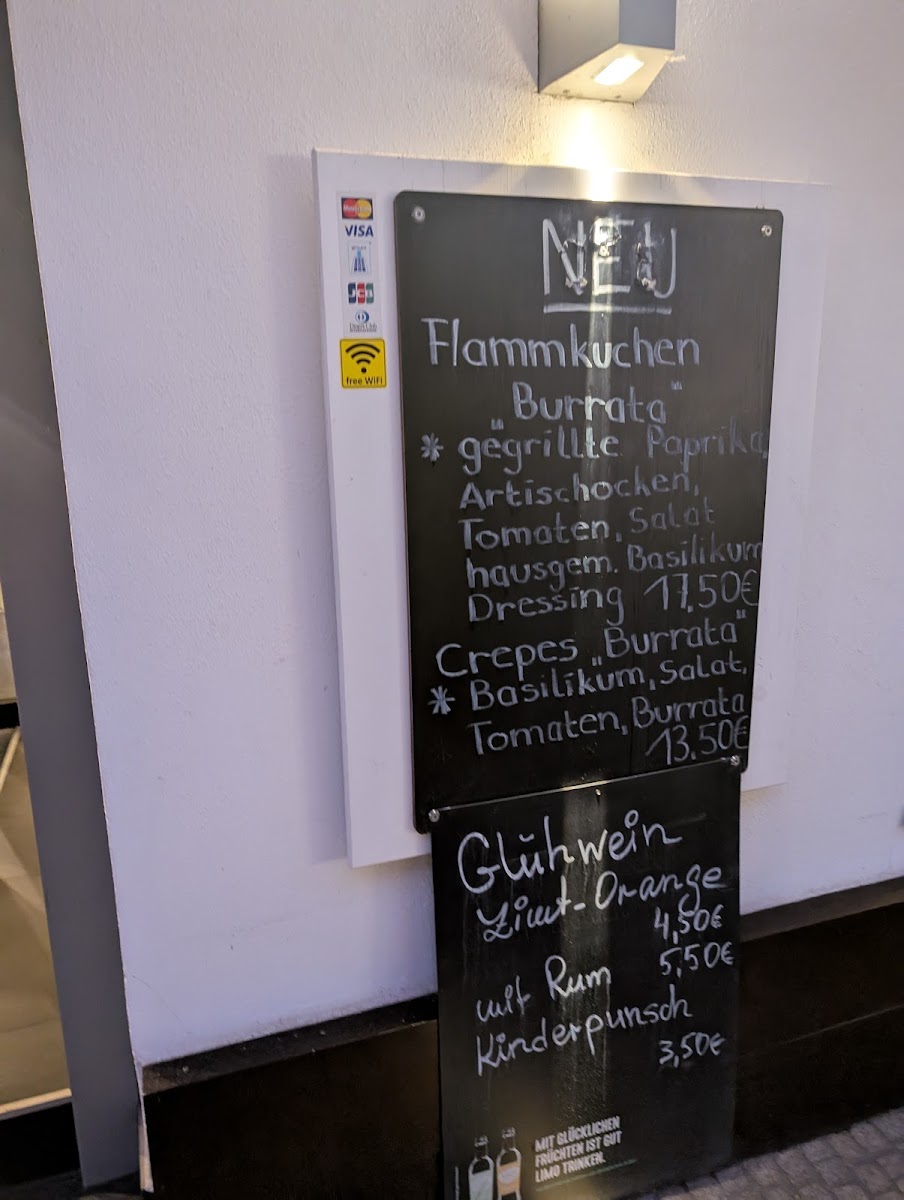 MasterCard
VISA
JCB
Diners Club
free WiFi
NEU
Flammkuchen
„Burrata"
* gegrillte Paprika,
Artischocken,
Tomaten, Salat
hausgem. Basilikum
Dressing 17.50€
Crepes „Burrata"
* Basilikum, Salat,
Tomaten, Burrata
13.50€
Glühwein
Zimt-Orange
4,50€
5,50€
mit Rum
Kinderpunsch
3,50€
MIT GLÜCKLICHEN
FRÜCHTEN IST GUT
LIMO TRINKEN.